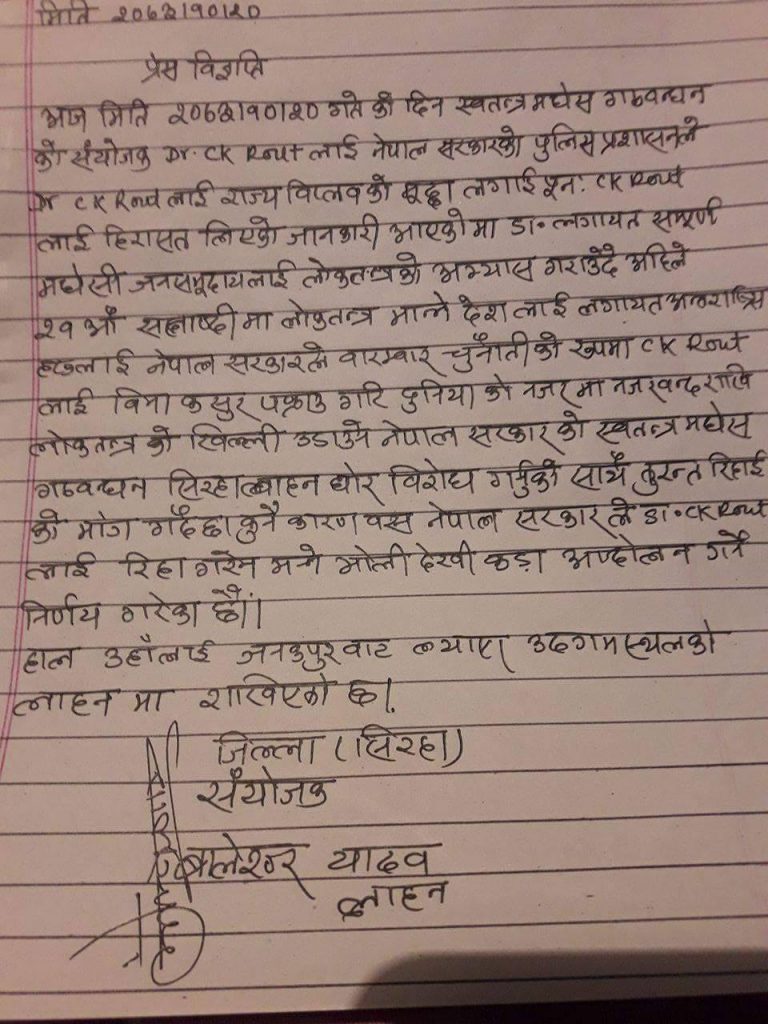 मिति २०७३।१०।२०
प्रेस विज्ञप्ति
आज मिति २०७३।१०।२० गते को दिन स्वतन्त्र मधेस गठवन्धन
को संयोजक Dr. CK Rout लाई नेपाल सरकारको पुलिस प्रशासनले
Dr CK Rout लाई राज्य विप्लवको मुद्दा लगाई पून: CK Rout
लाई हिरासत लिएको जानकारी आएको मा डा० लगायत सम्पूर्ण
मधेसी जनसमूदायलाई लोकतन्त्रको अभ्यास गराउँदै अहिले
२१ औं सताब्दी मा लोकतन्त्र मान्ने देश लाई लगायत
लाई नेपाल सरकारले वारम्वार चुनौती को रूपमा CK Rout
लाई विना कसुर पक्राउ गरि दुनिया को नजर मा नजरवन्द राखि
लोकतन्त्र को खिल्ली उडाउने नेपाल सरकार को स्वतन्त्र मधेस
गठवन्धन सिरहा लाहान घोर विरोध गर्नुको साथै तुरन्त रिहाई
को माग गर्दछ। कुनै कारण वस नेपाल सरकार ले डा० CK Rout
लाई रिहा गरेन भने भोली देखी कडा आन्दोलन गर्ने
निर्णय गरेका छौं।
हाल उहाँलाई जनकपुर वाट ल्याए उदगमस्थलको
लाहान मा राखिएको छ।
जिल्ला (सिरहा)
संयोजक
बालेश्वर यादव
लाहान